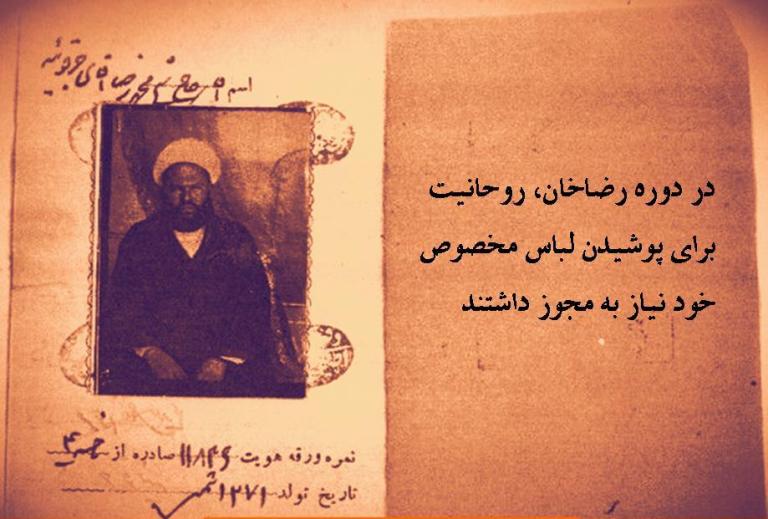 اسم آقای حاج شیخ محمد رضا آقای جرقویه
در دوره رضاخان، روحانیت
برای پوشیدن لباس مخصوص
خود نیاز به مجوز داشتند
نمره ورقه هویت ۱۱۸۴۶ صادره از
تاریخ تولد ۱۲۷۱ شمسی